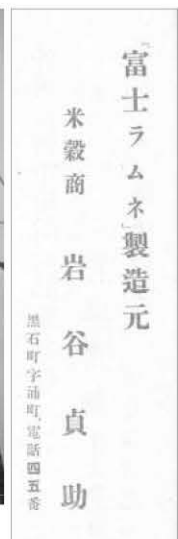 「富士ラムネ」製造元
米穀商 岩谷貞助
黒石町字浦町、電話四五番